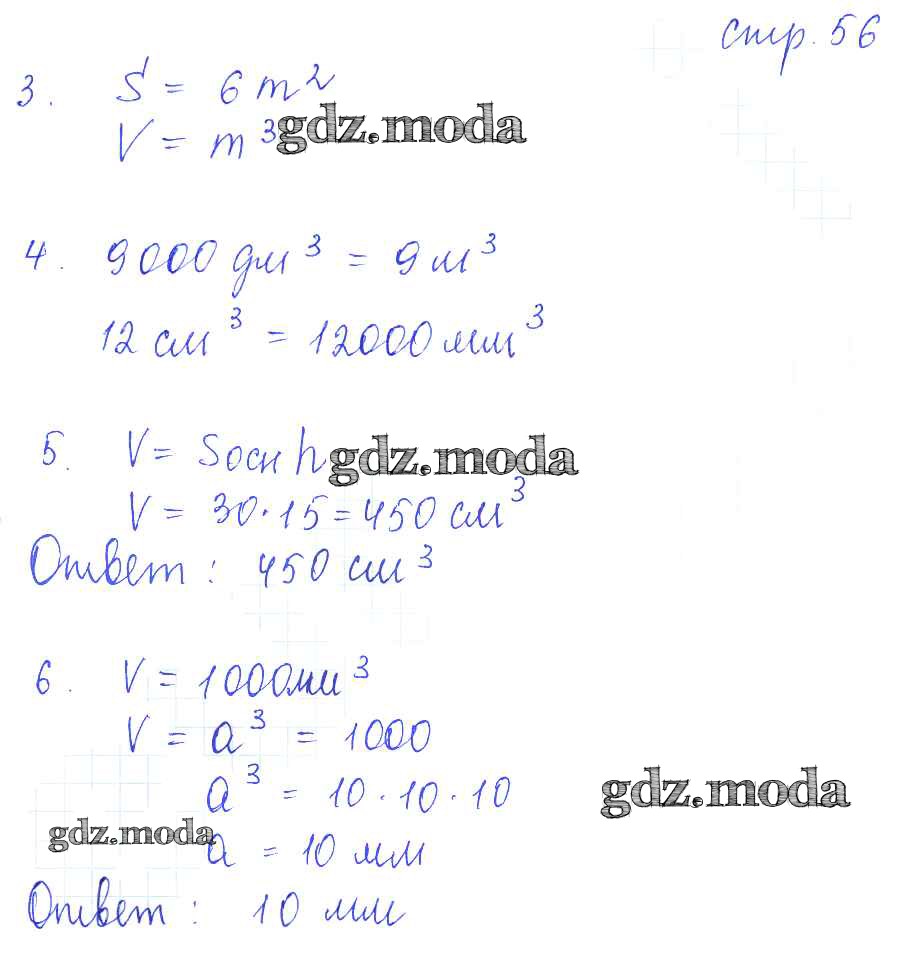 стр. 56
3. S = 6 m²
V = m³ gdz.moda
4. 9000 дм³ = 9 м³
12 см³ = 12000 мм³
5. V = Sосн h gdz.moda
V = 30·15 = 450 см³
Ответ: 450 см³
6. V = 1000мм³
V = a³ = 1000
a³ = 10 · 10 · 10 gdz.moda
gdz.moda a = 10 мм
Ответ: 10 мм